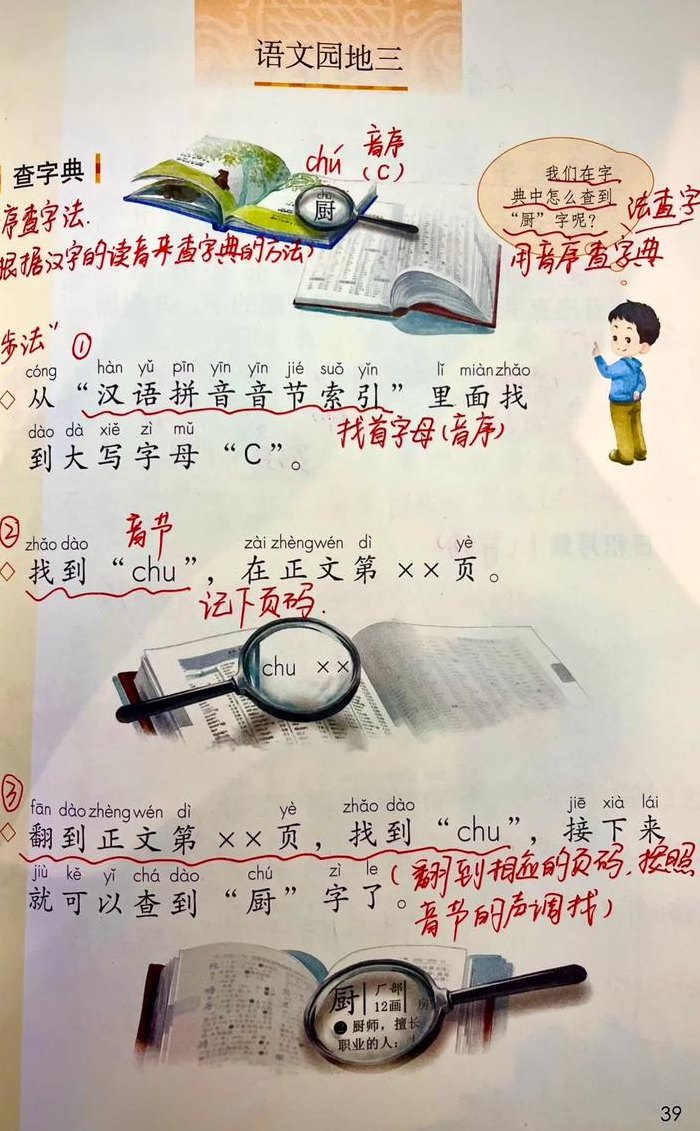 语文园地三
查字典
chú
音序
(C)
chú
厨
我们在字
典中怎么查到
“厨”字呢？
法查字
用音序查字典
序查字法.
根据汉字的读音来查字典的方法)
步法”
①
cóng hàn yǔ pīn yīn yīn jié suǒ yǐn lǐ miàn zhǎo
◇ 从“汉语拼音音节索引”里面找
dào dà xiě zì mǔ
到大写字母“C”。
找首字母(音序)
②
音节
zhǎo dào zài zhèng wén dì yè
◇ 找到“chu”，在正文第××页。
记下页码.
chu ××
③
fān dào zhèng wén dì yè zhǎo dào jiē xià lái
◇ 翻到正文第××页，找到“chu”，接下来
jiù kě yǐ chá dào chú zì le
就可以查到“厨”字了。
(翻到相应的页码.按照
音节的声调找)
厨
厂部
12画
房
厨师，擅长
职业的人；
39